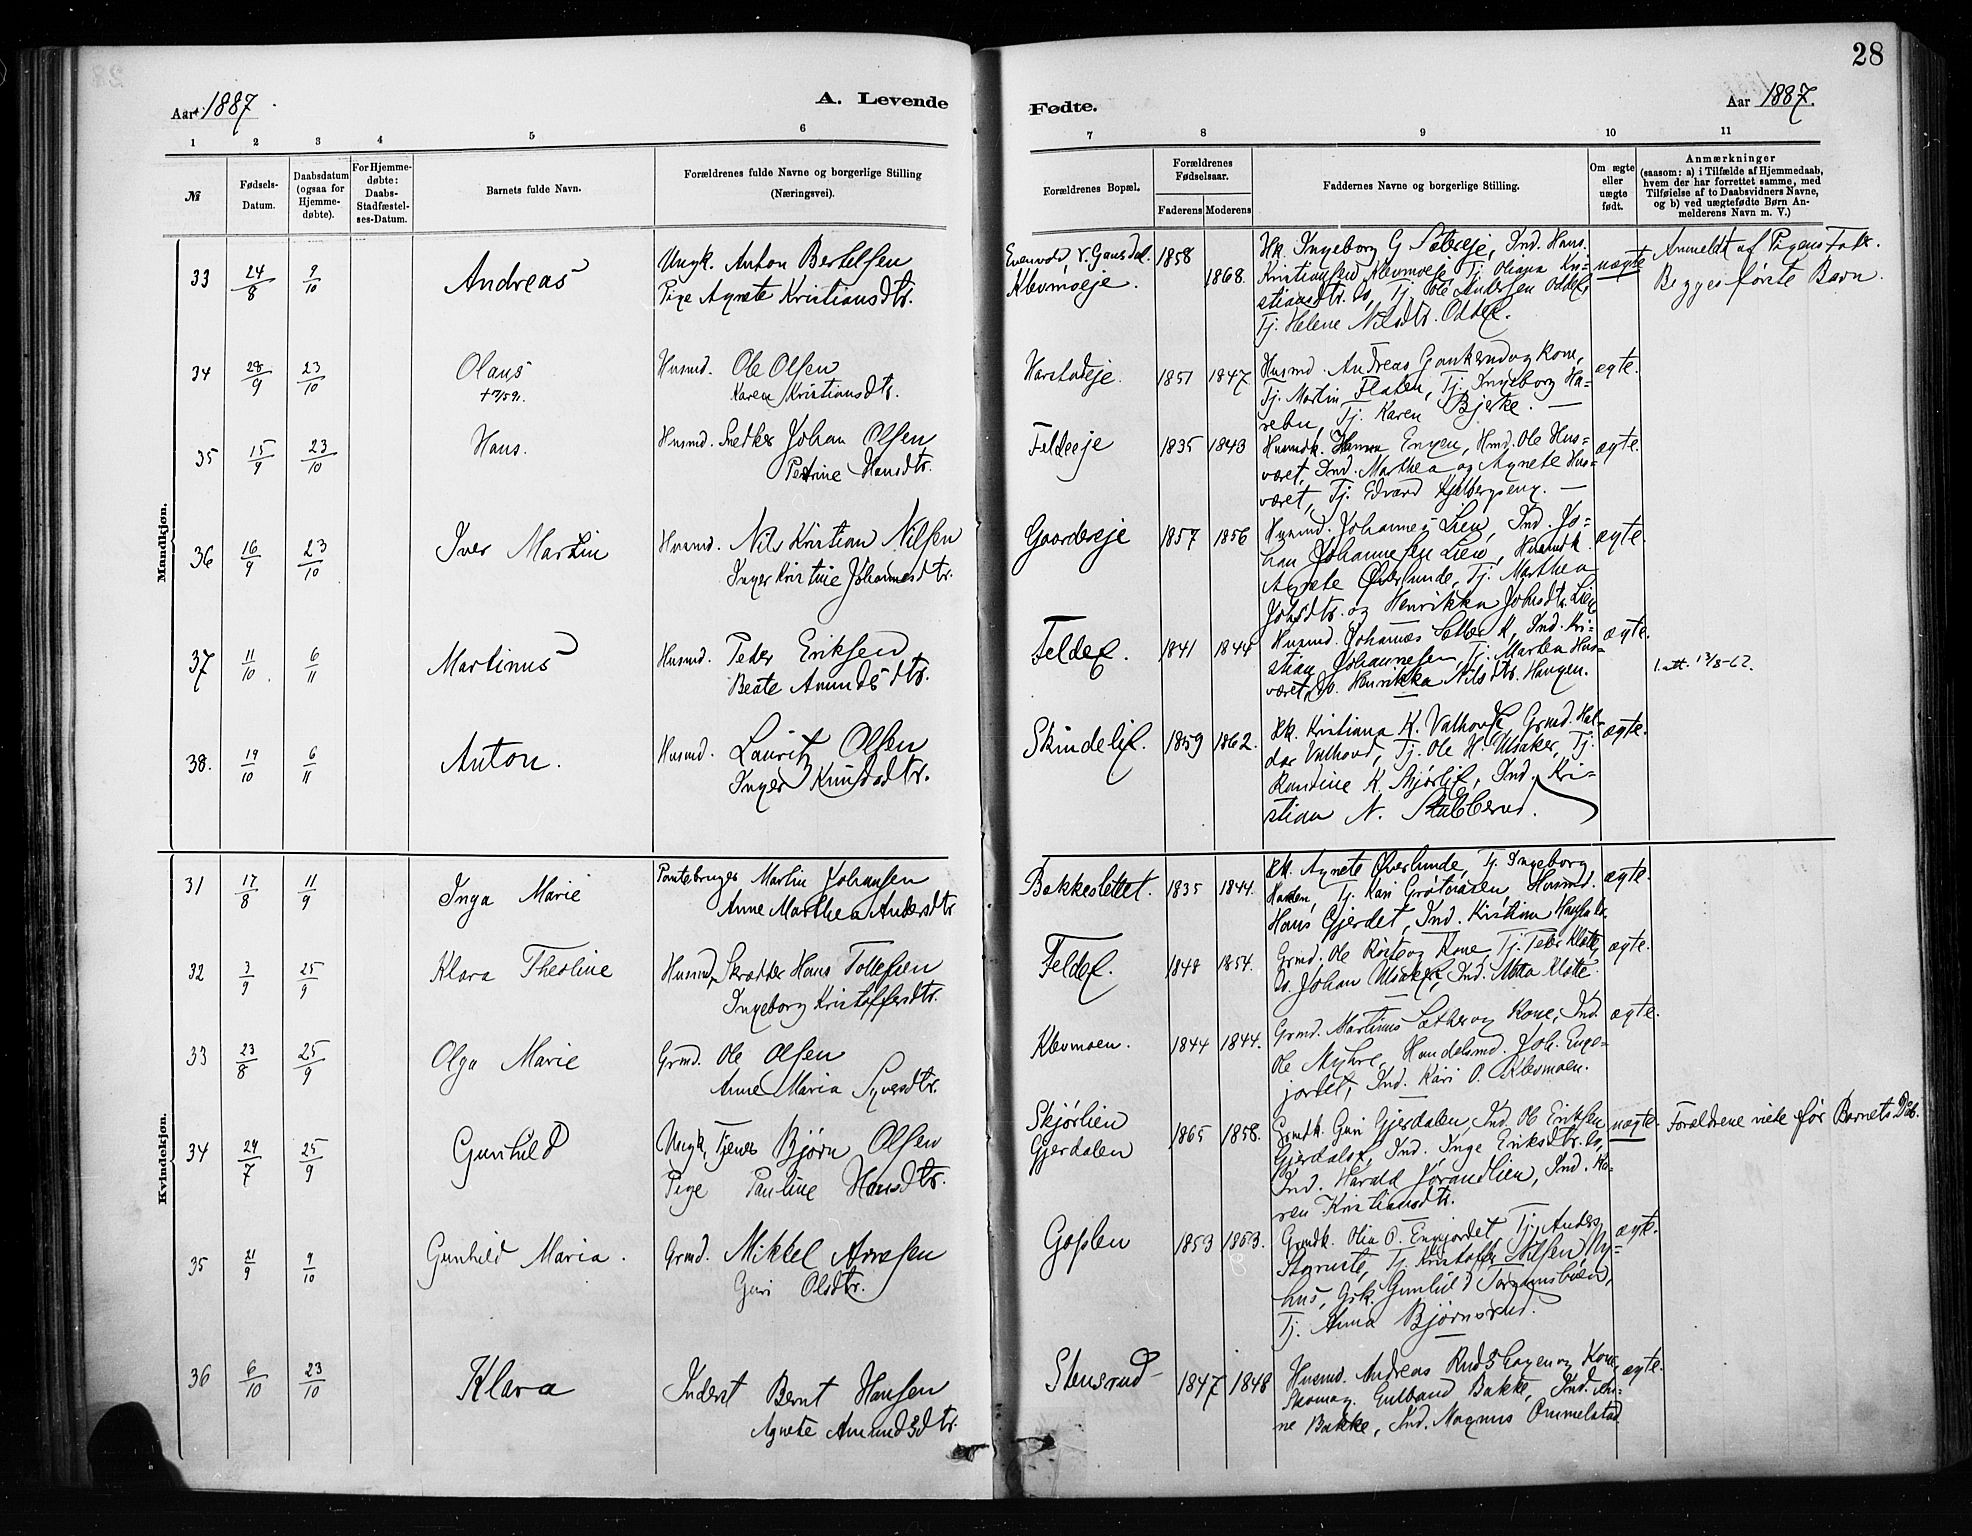 28
Aar 1887.
A. Levende
Fødte.
Aar 1887.
1 2 3 4 5 6 7 8 9 10 11
№
Fødsels-Datum.
Daabsdatum (ogsaa for Hjemme-døbte).
For Hjemme-døbte: Daabs-Stadfæstel-ses-Datum.
Barnets fulde Navn.
Forældrenes fulde Navne og borgerlige Stilling
(Næringsvei).
Forældrenes Bopæl.
Forældrenes Fødselsaar.
Faderens Moderens
Faddernes Navne og borgerlige Stilling.
Om ægte eller uægte født.
Anmærkninger
(saasom: a) i Tilfælde af Hjemmedaab,
hvem der har forrettet samme, med
Tilføielse af to Daabsvidners Navne,
og b) ved uægtefødte Børn An-
melderens Navn m. V.)
Mandkjøn.
33 24/8 9/10 Andreas
Ungk. Anton Bertelsen
Pige Agnete Kristiansdtr.
Klevmoeje.
1858 1868.
Hk. Ingeborg G Sætereje, Ind. Hans
Kristiansen Klevmoeje Tj. Oliana Kri-
stiansdtr. do, Tj. Ole Andersen Oddeje
Tj. Helene Nilsdtr. Odde
uægte
Anmeldt af Pigens Fader.
Begges første Barn.
34 28/9 23/10 Olaus
Husmd. Ole Olsen
Karen Kristiansdtr.
Harstadeje. 1851 1847
Husmd. Andreas og Kone,
Tj. Martin Flaten, Tj. Ingeborg Ha-
rebu, Tj. Karen Bjerke. —
ægte.
35 15/9 23/10 Hans.
Husmd. Snedker Johan Olsen
Petrine Hansdtr.
Feldeeje 1835 1843
Husmdk. Engen, Hmd. Ole Hus-
været, Ind. Marthea og Agnete Hus-
været, Tj. Edvard Kjelbergseng. —
ægte.
36 16/9 23/10 Iver Martin
Husmd. Nils Kristian Nilsen
Inger Kristine Johannesdtr.
Gaardereje 1857 1856
Husmd. Johannes Lien, Ind. Jo-
han Johannesen Lien, Husmdk.
Agnete Øverlunde, Tj. Marthea
Johsdtr. og Henrikka Johsdtr. Lien
ægte.
37 11/10 6/11 Martinus
Husmd. Peder Eriksen
Beate Amundsdtr.
Felde 1841 1844
Husmd. Johannes Sæter, Ind. Kri-
stian Johannesen, Tj. Marten Hus-
været, do. Henrikka Nilsdtr. Haugen.
ægte.
38. 19/10 6/11 Anton.
Husmd. Lauritz Olsen
Inger Knudsdtr.
Skindeli 1859 1862.
Hk. Kristiana K. Valhovd, Grmd. Hal-
dor Valhovd, Tj. Ole H. Ulsaker, Tj.
Randine K. Skjørli, Ind. Kri-
stian N. Stubberud.
ægte.
Kvindekjøn.
31 17/8 11/9 Inga Marie
Pantebruger Martin Johansen
Anne Marthea Andersdtr.
Bakkeslettet. 1835 1844.
Hk. Agnete Øverlunde, Tj. Ingeborg
Haugen, Tj. Kari Grøtaasen, Husmd.
Hans Gjerdet, Ind. Kristian
ægte.
32 3/9 25/9 Klara Theoline
Husmd. Skrædder Hans Tollefsen
Ingeborg Kristoffersdtr.
Felde 1848 1854.
Grmd. Ole Roste og Kone, Tj. Peder Kløtte,
do. Johan Ulsaker, Ind. Kløtte.
ægte.
33 23/8 25/9 Olga Marie
Grmd. Ole Olsen
Anne Maria Syversdtr.
Klevmoen. 1844 1844.
Grmd. Martinus Sæther og Kone, Ind.
Ole Myhre, Handelsmd. Joh. Enge-
jordet, Ind. Kari O. Klevmoen.
ægte.
34 24/7 25/9 Gunhild
Ungk. Tjener Bjørn Olsen
Pige Pauline Hansdtr.
Skjørlien
Gjerdalen
1865 1858.
Grmdk. Guri Gjerdalen, Ind. Ole Eriksen
Gjerdale, Ind. Inge Eriksdtr. do,
Ind. Harald Jørandlien, Ind. Ka-
ren Kristiansdtr.
uægte.
Forældrene viede før Barnets Dåb.
35 21/9 9/10 Gunhild Maria.
Grmd. Mikkel Arnesen
Guri Olsdtr.
Goplen 1853 1853.
Grmdk. Olia O. Engejordet, Tj. Anders
Storruste, Tj. Kristoffer Nilsen Ny-
hus, Gsk. Gunhild
Tj. Anna Bjørnsrud.
ægte.
36 6/10 23/10 Klara
Inderst Bernt Hansen
Agnete Amundsdtr.
Stensrud 1847 1848
Husmd. Andreas Rudshagen og Kone,
Skomag. Gulbrand Bakke, Ind. An-
ne Bakke, Ind. Magnus Ommelstad
ægte.